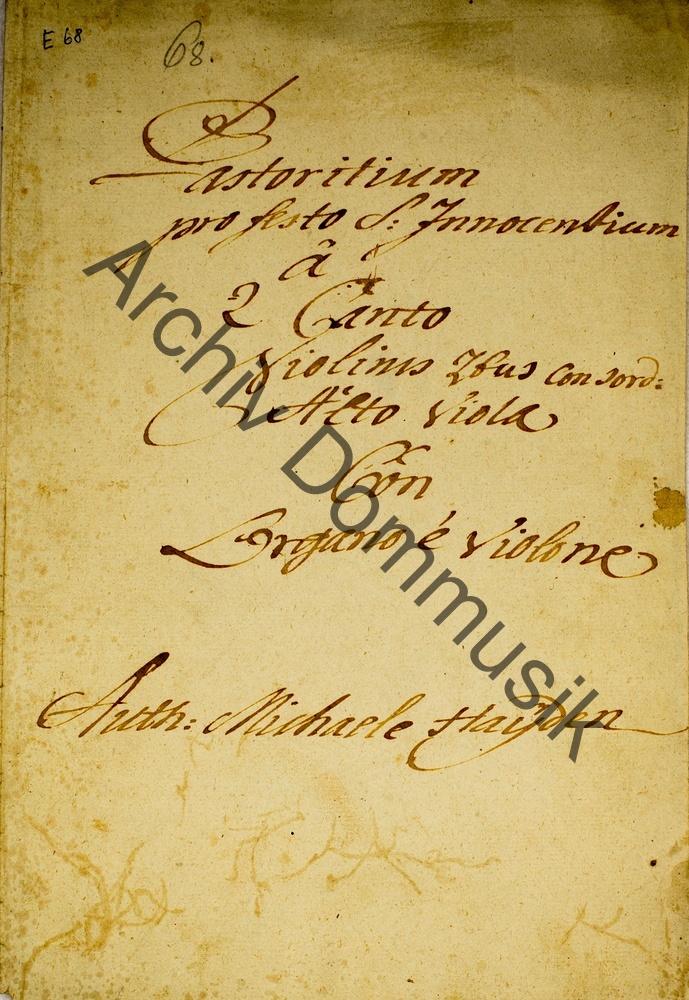 E 68
68.
Pastoritium
pro festo S: Innocentium
à
2 Canto
Violinis 2bus con sord:
Alto Viola
Con
Organo è Violone
Auth: Michaele Hayden
Archiv Dommusik